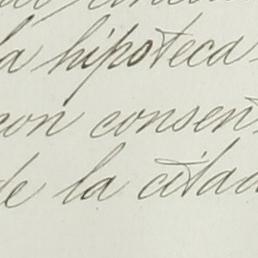 la hipoteca
con consent
de la citad